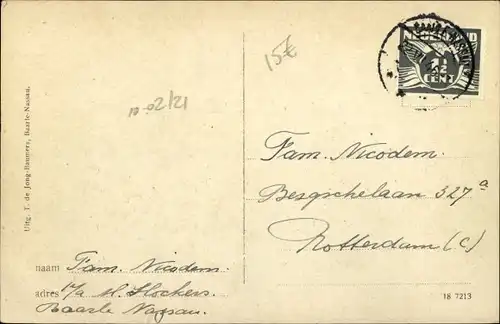 NEDERLAND
1½
CENT
15€
Uitg. T. de Jong-Danners, Baarle-Nassau.
Fam. Nicodem.
Bergschelaan 327a
Rotterdam (C)
naam Fam. Nicodem.
adres p/a H. Hockers.
Baarle Nassau.
18 7213